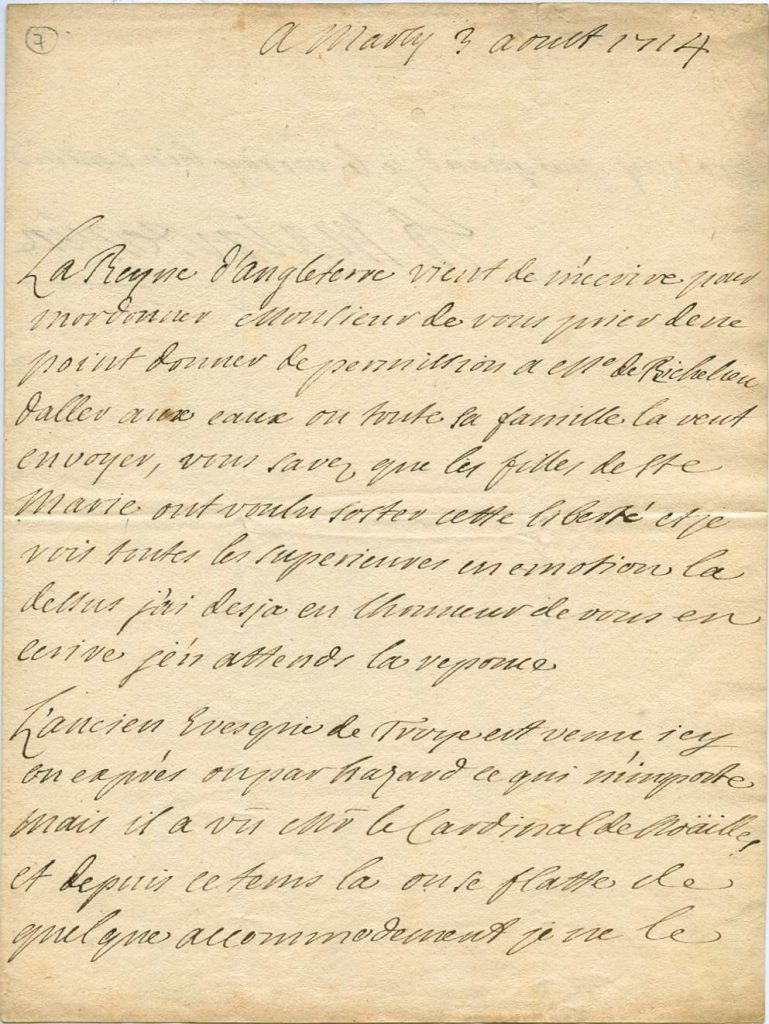 7
A Marly 3 aoust 1714
La Reyne d'angleterre vient de m'ecrire pour
mordonner Monsieur de vous prier de ne
point donner de permission a Me de Richelieu
daller aux eaux ou toute sa famille la veut
envoyer, vous savez que les filles de Ste
Marie ont voulu soster cette liberté et je
vois toutes les superieures en emotion la
dessus j'ai desja eu lhonneur de vous en
ecrire j'en attends la reponce
L'ancien Evesque de Troye est venu icy
ou exprés ou par hazard ce qui n'importe
mais il a vû Mr le Cardinal de Noäilles
et depuis ce tems la on se flatte de
quelque accommodement je ne le